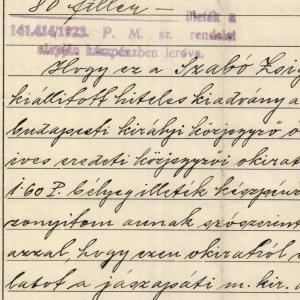 80 fillér — illeték a
141.414/1923. P. M. sz. rendelet
alapján készpénzben leróva.
Hogy ez a Szabó Zsig
kiállitott hiteles kiadvány a
budapesti királyi közjegyző ö
ives eredeti közjegyzői okirat
1.60 P. bélyegilleték készpénz
zonyitom annak szószerint
azzal, hogy ezen okiratról a
latot a jászapáti m. kir. a